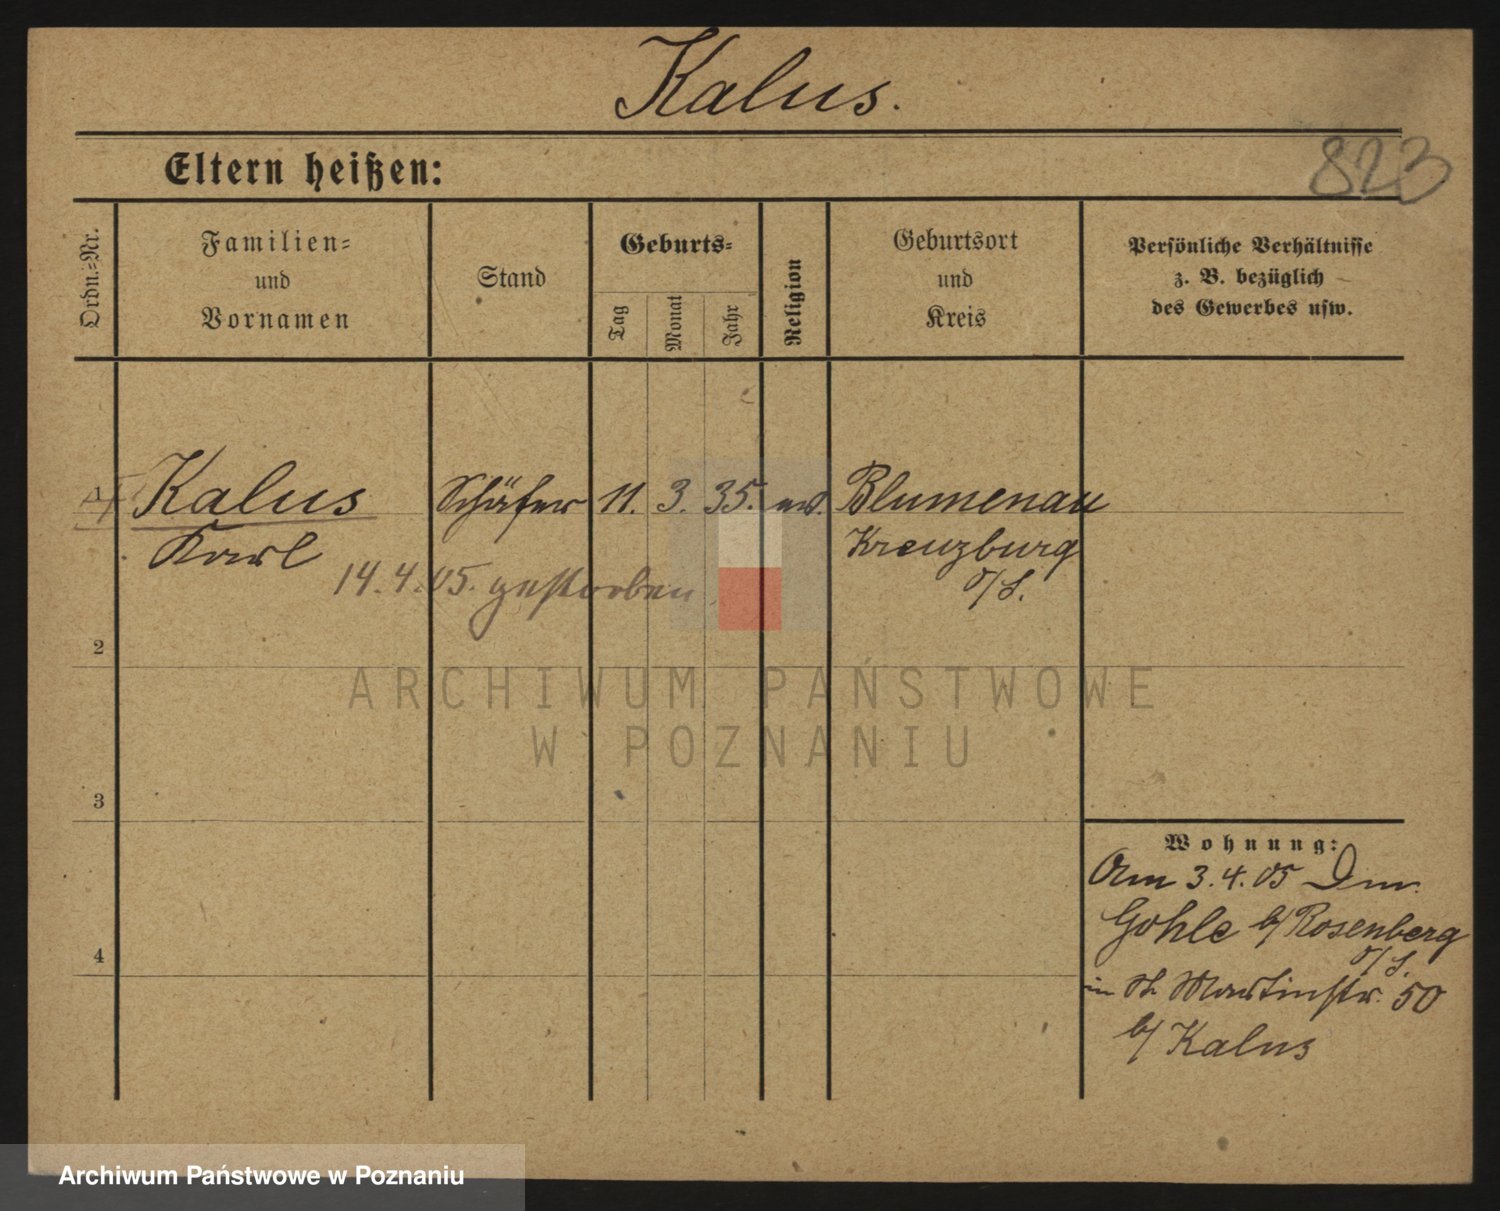 Kalus.
823
Eltern heißen:
Ordn.=Nr.
Familien=
und
Vornamen
Stand
Geburts=
Tag
Monat
Jahr
Religion
Geburtsort
und
Kreis
Persönliche Verhältnisse
z. B. bezüglich
des Gewerbes usw.
1 Kalus Schäfer 11. 3. 35. Blumenau
Karl Kreuzburg
O/S.
14.4.05. gestorben
2
3
4
Wohnung:
Am 3.4.05
Gohle b/ Rosenberg
O/S.
in St Martinstr. 50
b/ Kalus
ARCHIWUM PAŃSTWOWE
W POZNANIU
Archiwum Państwowe w Poznaniu